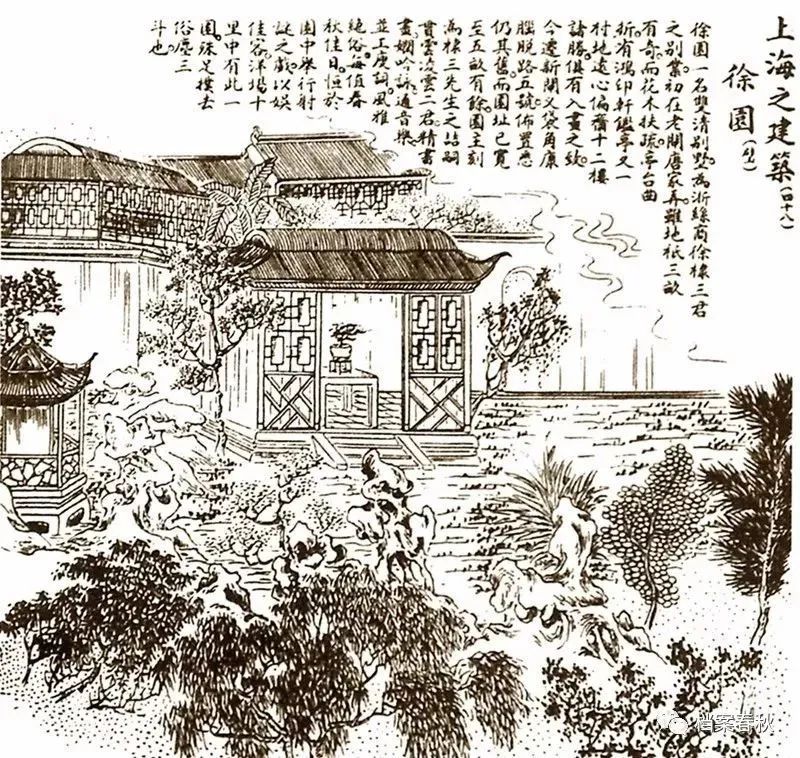 上海之建築(四十八)
徐園
徐園一名雙清別墅為浙絲商徐棣三君
之別業初在老閘唐家弄雖地祇三畝
有奇而花木扶疏亭台曲
折有鴻印軒鑑亭又一
村地遠心偏齋十二樓
諸勝俱有入畫之致
今遷新閘叉袋角康
腦脫路五號佈置悉
仍其舊而園址已寬
至五畝有餘園主刻
為棣三先生之喆嗣
貫雲淩雲二君精書
畫嫻吟詠通音樂
並工度詞風雅
絕俗每值春
秋佳日恒於
園中舉行射
謎之戲以娛
佳客洋場十
里中有此一
園殊足撲去
俗塵三
斗也
档案春秋